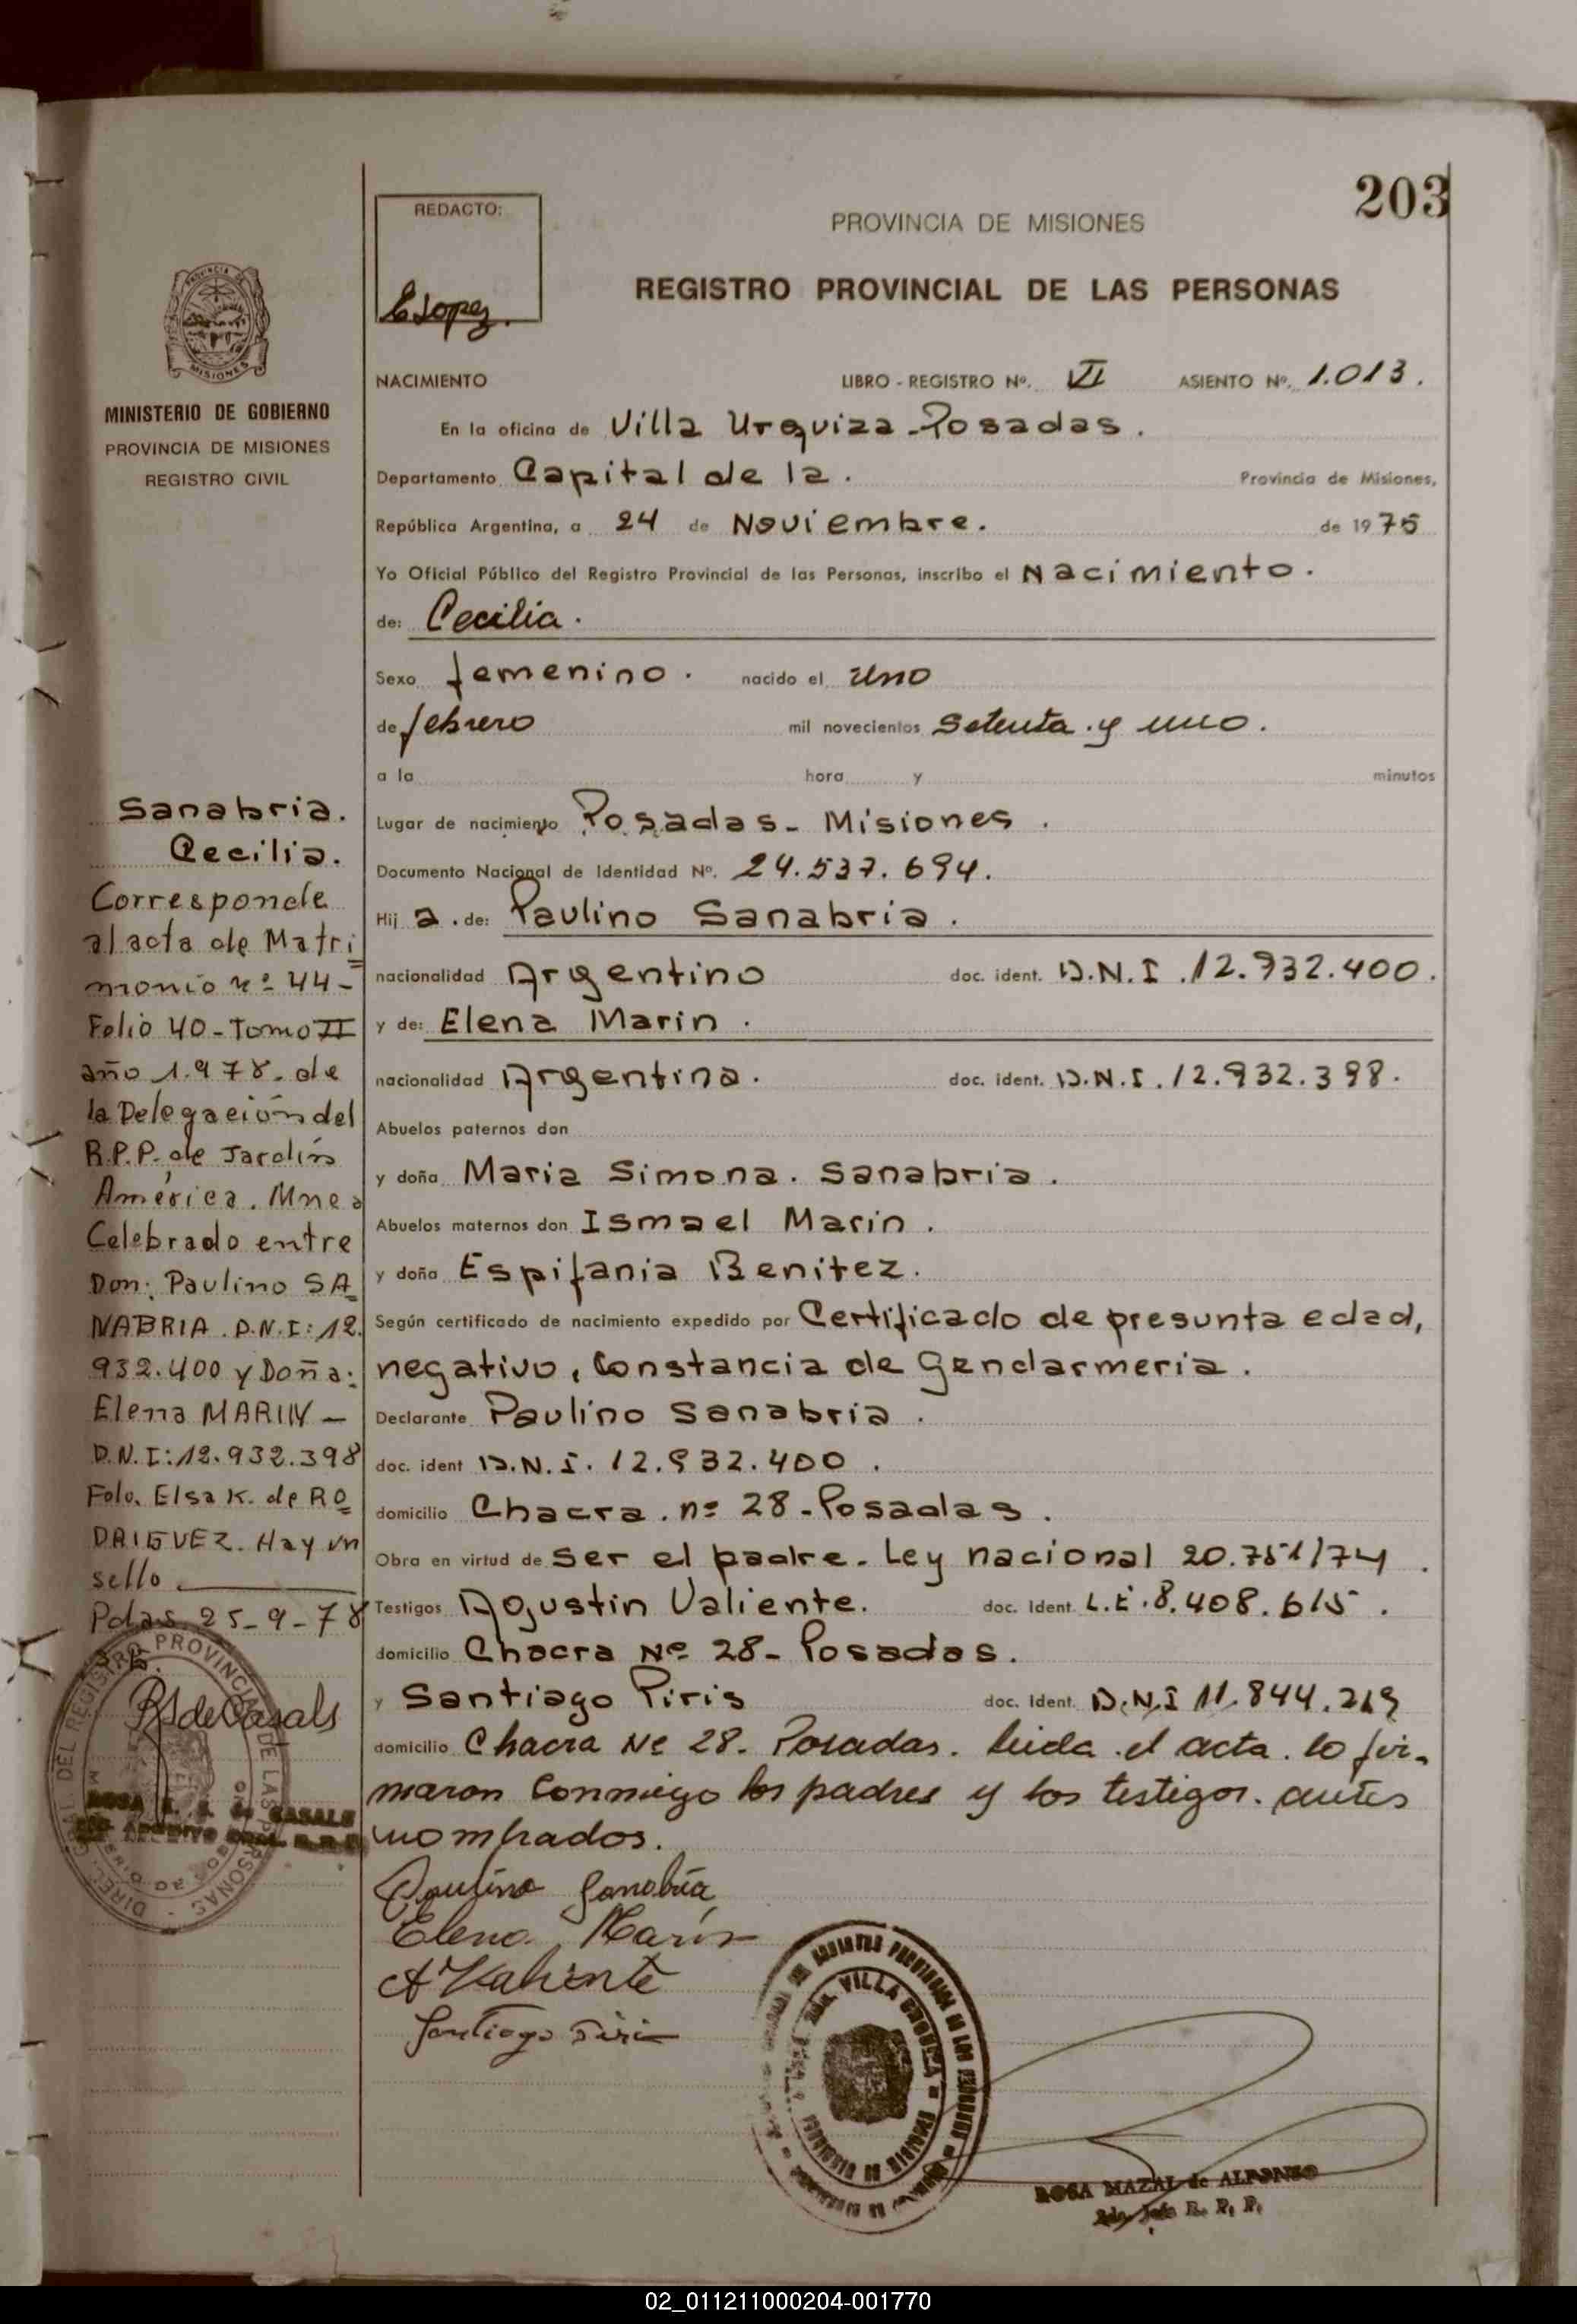 203
REDACTO:
E Lopez.
PROVINCIA DE MISIONES
REGISTRO PROVINCIAL DE LAS PERSONAS
MISIONES
MINISTERIO DE GOBIERNO
PROVINCIA DE MISIONES
REGISTRO CIVIL
NACIMIENTO LIBRO - REGISTRO Nº. VI ASIENTO Nº. 1.013.
En la oficina de Villa Urquiza - Posadas.
Departamento Capital de la. Provincia de Misiones,
República Argentina, a 24 de Noviembre. de 1975
Yo Oficial Público del Registro Provincial de las Personas, inscribo el Nacimiento.
de: Cecilia.
Sexo femenino. nacido el uno
de febrero mil novecientos setenta y uno.
a la hora y minutos
Lugar de nacimiento Posadas - Misiones.
Documento Nacional de Identidad Nº. 24.537.694.
Hij a. de: Paulino Sanabria.
nacionalidad Argentino doc. ident. D.N.I. 12.932.400.
y de: Elena Marin.
nacionalidad Argentina. doc. ident. D.N.I. 12.932.398.
Abuelos paternos don
y doña Maria Simona. Sanabria.
Abuelos maternos don Ismael Marin.
y doña Espifania Benitez.
Según certificado de nacimiento expedido por Certificado de presunta edad,
negativo, Constancia de Gendarmeria.
Declarante Paulino Sanabria.
doc. ident D.N.I. 12.932.400.
domicilio Chacra. nº 28 - Posadas.
Obra en virtud de ser el padre. Ley nacional 20.751/74.
Testigos Agustin Valiente. doc. Ident. L.E. 8.408.615.
domicilio Chacra Nº 28 - Posadas.
y Santiago Piris doc. Ident. D.N.I 11.844.219
domicilio Chacra Nº 28. Posadas. leida el acta. lo fir-
maron conmigo los padres y los testigos. antes
nombrados.
Paulino Sanabria
Elena Marín
A Valiente
Santiago Piri
ROSA MAZAL de ALFONSO
R. P. P.
Sanabria.
Cecilia.
Corresponde
al acta de Matri
monio nº 44-
Folio 40 - Tomo II
año 1.978. de
la Delegación del
R.P.P. de Jardín
América. Mnes
Celebrado entre
Don: Paulino SA
NABRIA. D.N.I: 12.
932.400 y Doña:
Elena MARIN -
D.N.I: 12.932.398
Fdo. Elsa K. de RO
DRIGUEZ. Hay un
sello
Pdas 25-9-78
RS de Casals
DIREC. GRAL. DEL REGISTRO PROVINCIAL DE LAS PERSONAS
ROSA de CASALS
VILLA URQUIZA
02_011211000204-001770